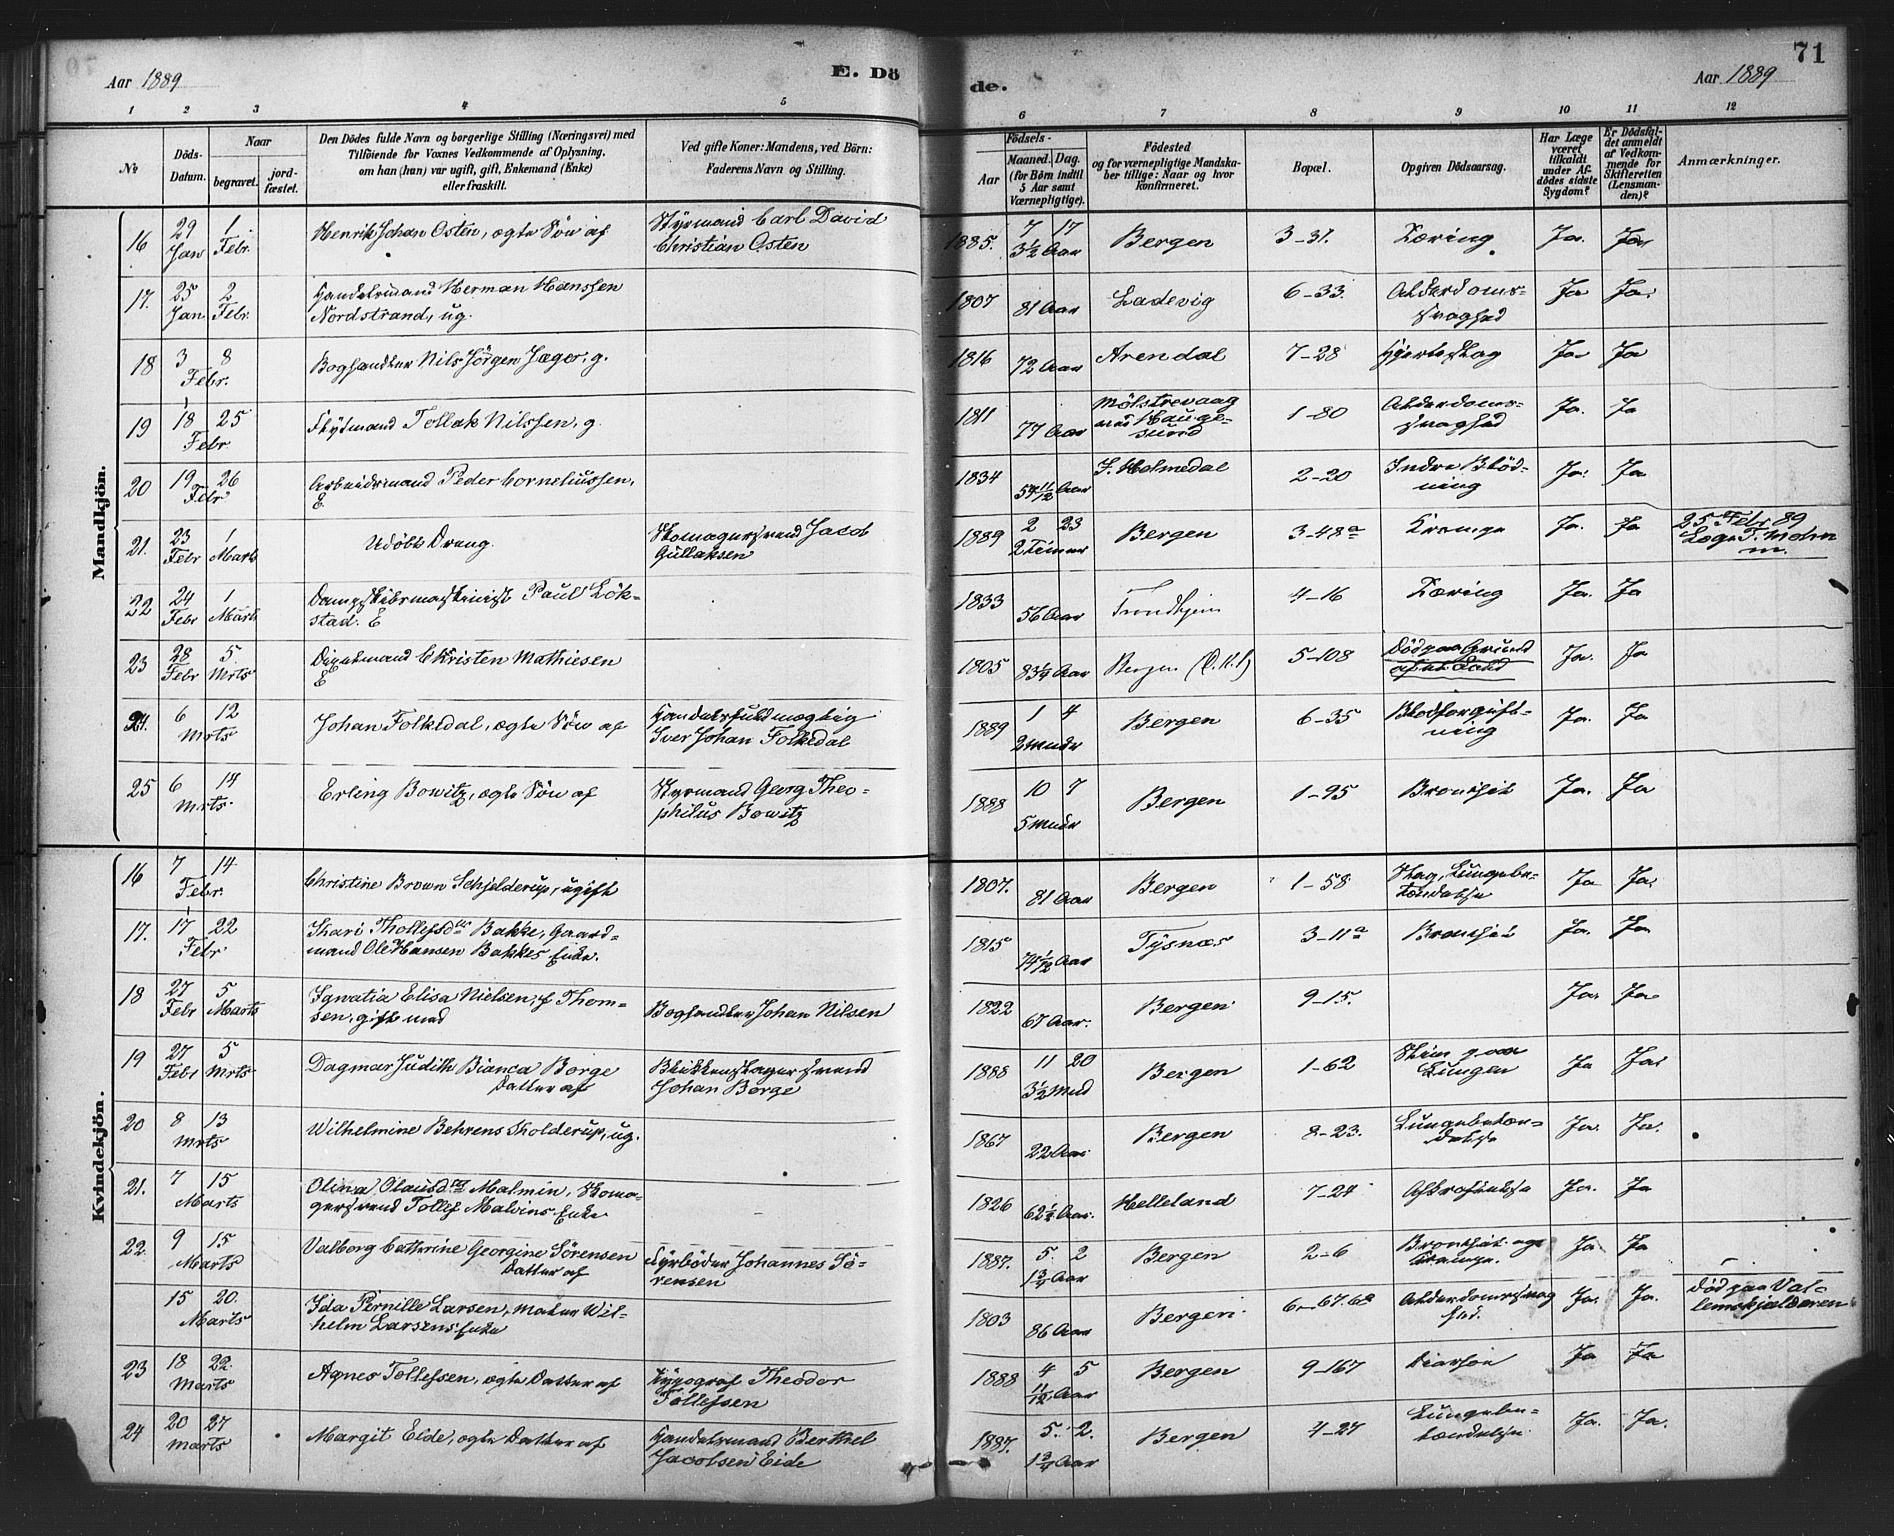 Aar 1889
E. Dö
de.
71
Aar 1889
1 2 3 4 5 6 7 8 9 10 11 12
№
Döds-Datum.
Naar
begravet.
jordfæstet.
Den Dödes fulde Navn og borgerlige Stilling (Næringsvei) med
Tilföiende for Voxnes Vedkommende af Oplysning,
om han (hun) var ugift, gift, Enkemand (Enke)
eller fraskilt.
Ved gifte Koner: Mandens, ved Börn:
Faderens Navn og Stilling.
Födsels-
Aar
Maaned. Dag.
(for Börn indtil
5 Aar samt
Værnepligtige).
Födested
og for værnepligtige Mandska-
ber tillige: Naar og hvor
konfirmeret.
Bopæl.
Opgiven Dödsaarsag.
Har Læge
været
tilkaldt
under Af-
dödes sidste
Sygdom?
Er Dödsfal-
det anmeldt
af Vedkom-
mende for
Skifteretten
(Lensman-
den)?
Anmærkninger.
Mandkjön.
16 29 Jan 1 Febr. Henrik Johan Osten, ægte Sön af Styrmand Carl David
Christian Osten 1885. 7 17 3½ Aar Bergen 3-31. Tæring Ja. Ja
17. 25 Jan 2 Febr. Handelsmand Herman Hanssen
Nordstrand, ug. 1807 81 Aar Ladevig 6-33. Alderdoms-
svaghed Ja Ja
18 3 8 Febr. Boghandler Nils Jörgen Jæger, g. 1816 72 Aar Arendal 7-28 Hjerteslag Ja Ja
19 18 25 Febr. Flytmand Tollak Nilssen, g. 1811 77 Aar Mölstrevaag
ved Hauge-
sund 1-80 Alderdoms-
svaghed Ja. Ja
20 19 26 Febr Arbeidsmand Peder Corneliussen,
E 1834 54 11/12 Aar S. Holmedal 2-20 Indre Blöd-
ning Ja. Ja
21. 23 Febr 1 Marts Udöbt Dreng. Skomagersvend Jacob
Gullaksen 1889 2 23 2 Timer Bergen 3-48a Krampe Ja. Ja 25 Febr 89
Læge T. Mohn
m.
22 24 Febr 1 Marts Dampskibsmaskinist Paul Lök-
stad. E 1833 56 Aar Trondhjem 4-16 Tæring Ja. Ja
23 28 Febr 5 Mrts Christen Mathiesen
E 1805 83¼ Aar Bergen 5-108 Död paa Grund
Ja. Ja
24. 6 12 Mrts Johan Folkedal, ægte Sön af Handelsfuldmægtig
Iver Johan Folkedal 1889 1 4 2 Mndr Bergen 6-35 Blodforgift-
ning Ja. Ja
25 6 14 Mrts. Erling Bowitz, ægte Sön af Styrmand Georg Theo-
philus Bowitz 1888 10 7 5 Mndr Bergen 1-95 Bronchit Ja. Ja
Kvindekjön.
16 7 14 Febr. Christine Brown Schjelderup, ugift 1807. 81 Aar Bergen 1-58 Slag, Lungebe-
tændelse Ja Ja
17. 17 22 Febr Bakke, Gaard-
mand Ole Hansen Bakkes Enke. 1815 74 1/12 Aar Tysnæs 3-11a Bronchit Ja. Ja
18 27 Febr 5 Marts Ignatia Elisa Nielsen, f. Thom-
sen, gift med Boghandler Johan Nilsen 1822 67 Aar. Bergen 9-15. Ja. Ja
19 27 Febr 5 Mrts Dagmar Judith Bianca Borge
Datter af Blikkenslagersvend
Johan Borge 1888 11 20 3½ Mnd Bergen 1-62 Slim paa
Lungen Ja Ja
20 8 13 Mrts Wilhelmine Behrens Skolderup, ug. 1867 22 Aar Bergen 8-23. Lungebetæn-
delse Ja. Ja.
21. 7 15 Marts Olina Olausdtr Malmin, Skoma-
gersvend Tollef Malmins Enke 1826 62¼ Aar. Helleland 7-24 Ja. Ja
22. 9 15 Marts Valborg Cathrine Georgine Sörensen
Datter af Fyrböder Johannes Sö-
rensen 1887. 5. 2 1¾ Aar Bergen 2-6 Bronchit og
Krampe. Ja. Ja
15 20. Marts Ida Pernille Larsen, Maler Wil-
helm Larsens Enke 1803 86 Aar Bergen 6-67.68 Alderdomssvag
hed. Ja. Ja. Död paa
23 18 22. Marts Agnes Tollefsen, ægte Datter af Typograf Theodor
Tollefsen 1888 4 5 11/12 Aar Bergen 9-167 Diarhoe Ja Ja
24 20 27 Marts Margit Eide, ægte Datter af Handelsmand Berthel
Jacobsen Eide 1887. 5. 2. 1¾ Aar Bergen 4-27 Lungebe-
tændelse. Ja. Ja.